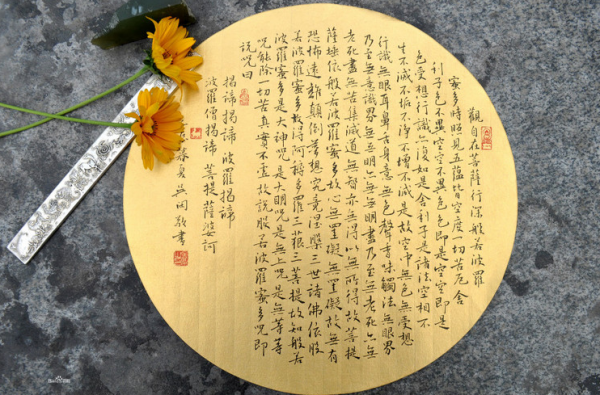 觀自在菩薩行深般若波羅
蜜多時照見五蘊皆空度一切苦厄舍
利子色不異空空不異色色即是空空即是
色受想行識亦復如是舍利子是諸法空相不
生不滅不垢不淨不增不減是故空中無色無受想
行識無眼耳鼻舌身意無色聲香味觸法無眼界
乃至無意識界無無明亦無無明盡乃至無老死亦無
老死盡無苦集滅道無智亦無得以無所得故菩提
薩埵依般若波羅蜜多故心無罣礙無罣礙故無有
恐怖遠離顛倒夢想究竟涅槃三世諸佛依般
若波羅蜜多故得阿耨多羅三藐三菩提故知般若
波羅蜜多是大神咒是大明咒是無上咒是無等等
咒能除一切苦真實不虛故說般若波羅蜜多咒即
說咒曰
揭諦揭諦 波羅揭諦
波羅僧揭諦 菩提薩婆訶
春 書